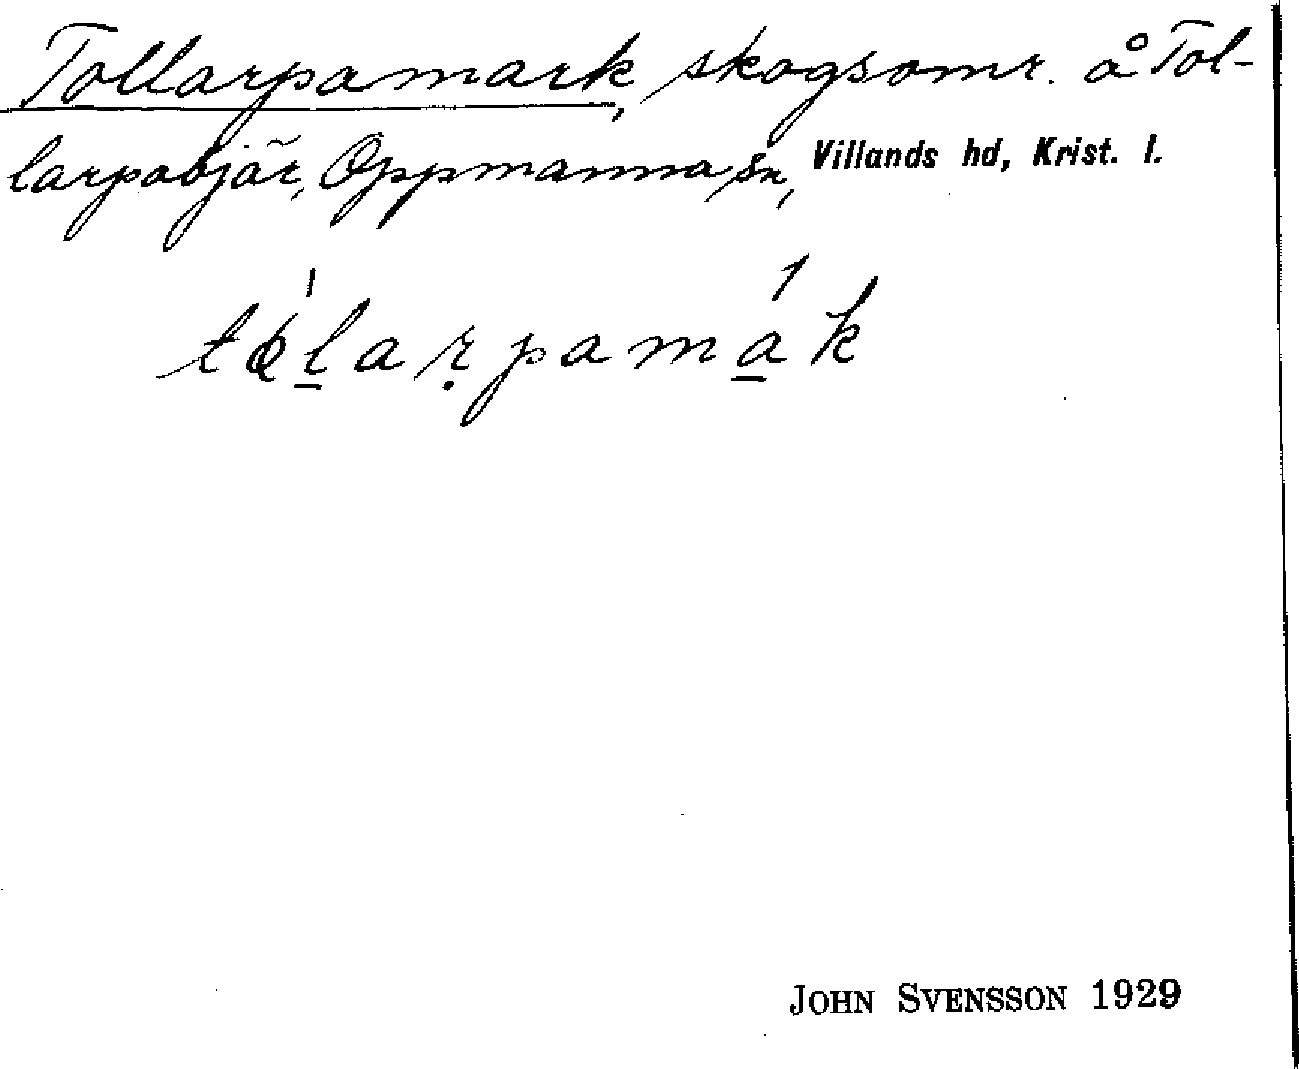 Tollarpamark, skogsomr. å Tol-
larpabjär, Oppmanna sn, Villands hd, Krist. l.
tol̲arp̣ama̲k
JOHN SVENSSON 1929